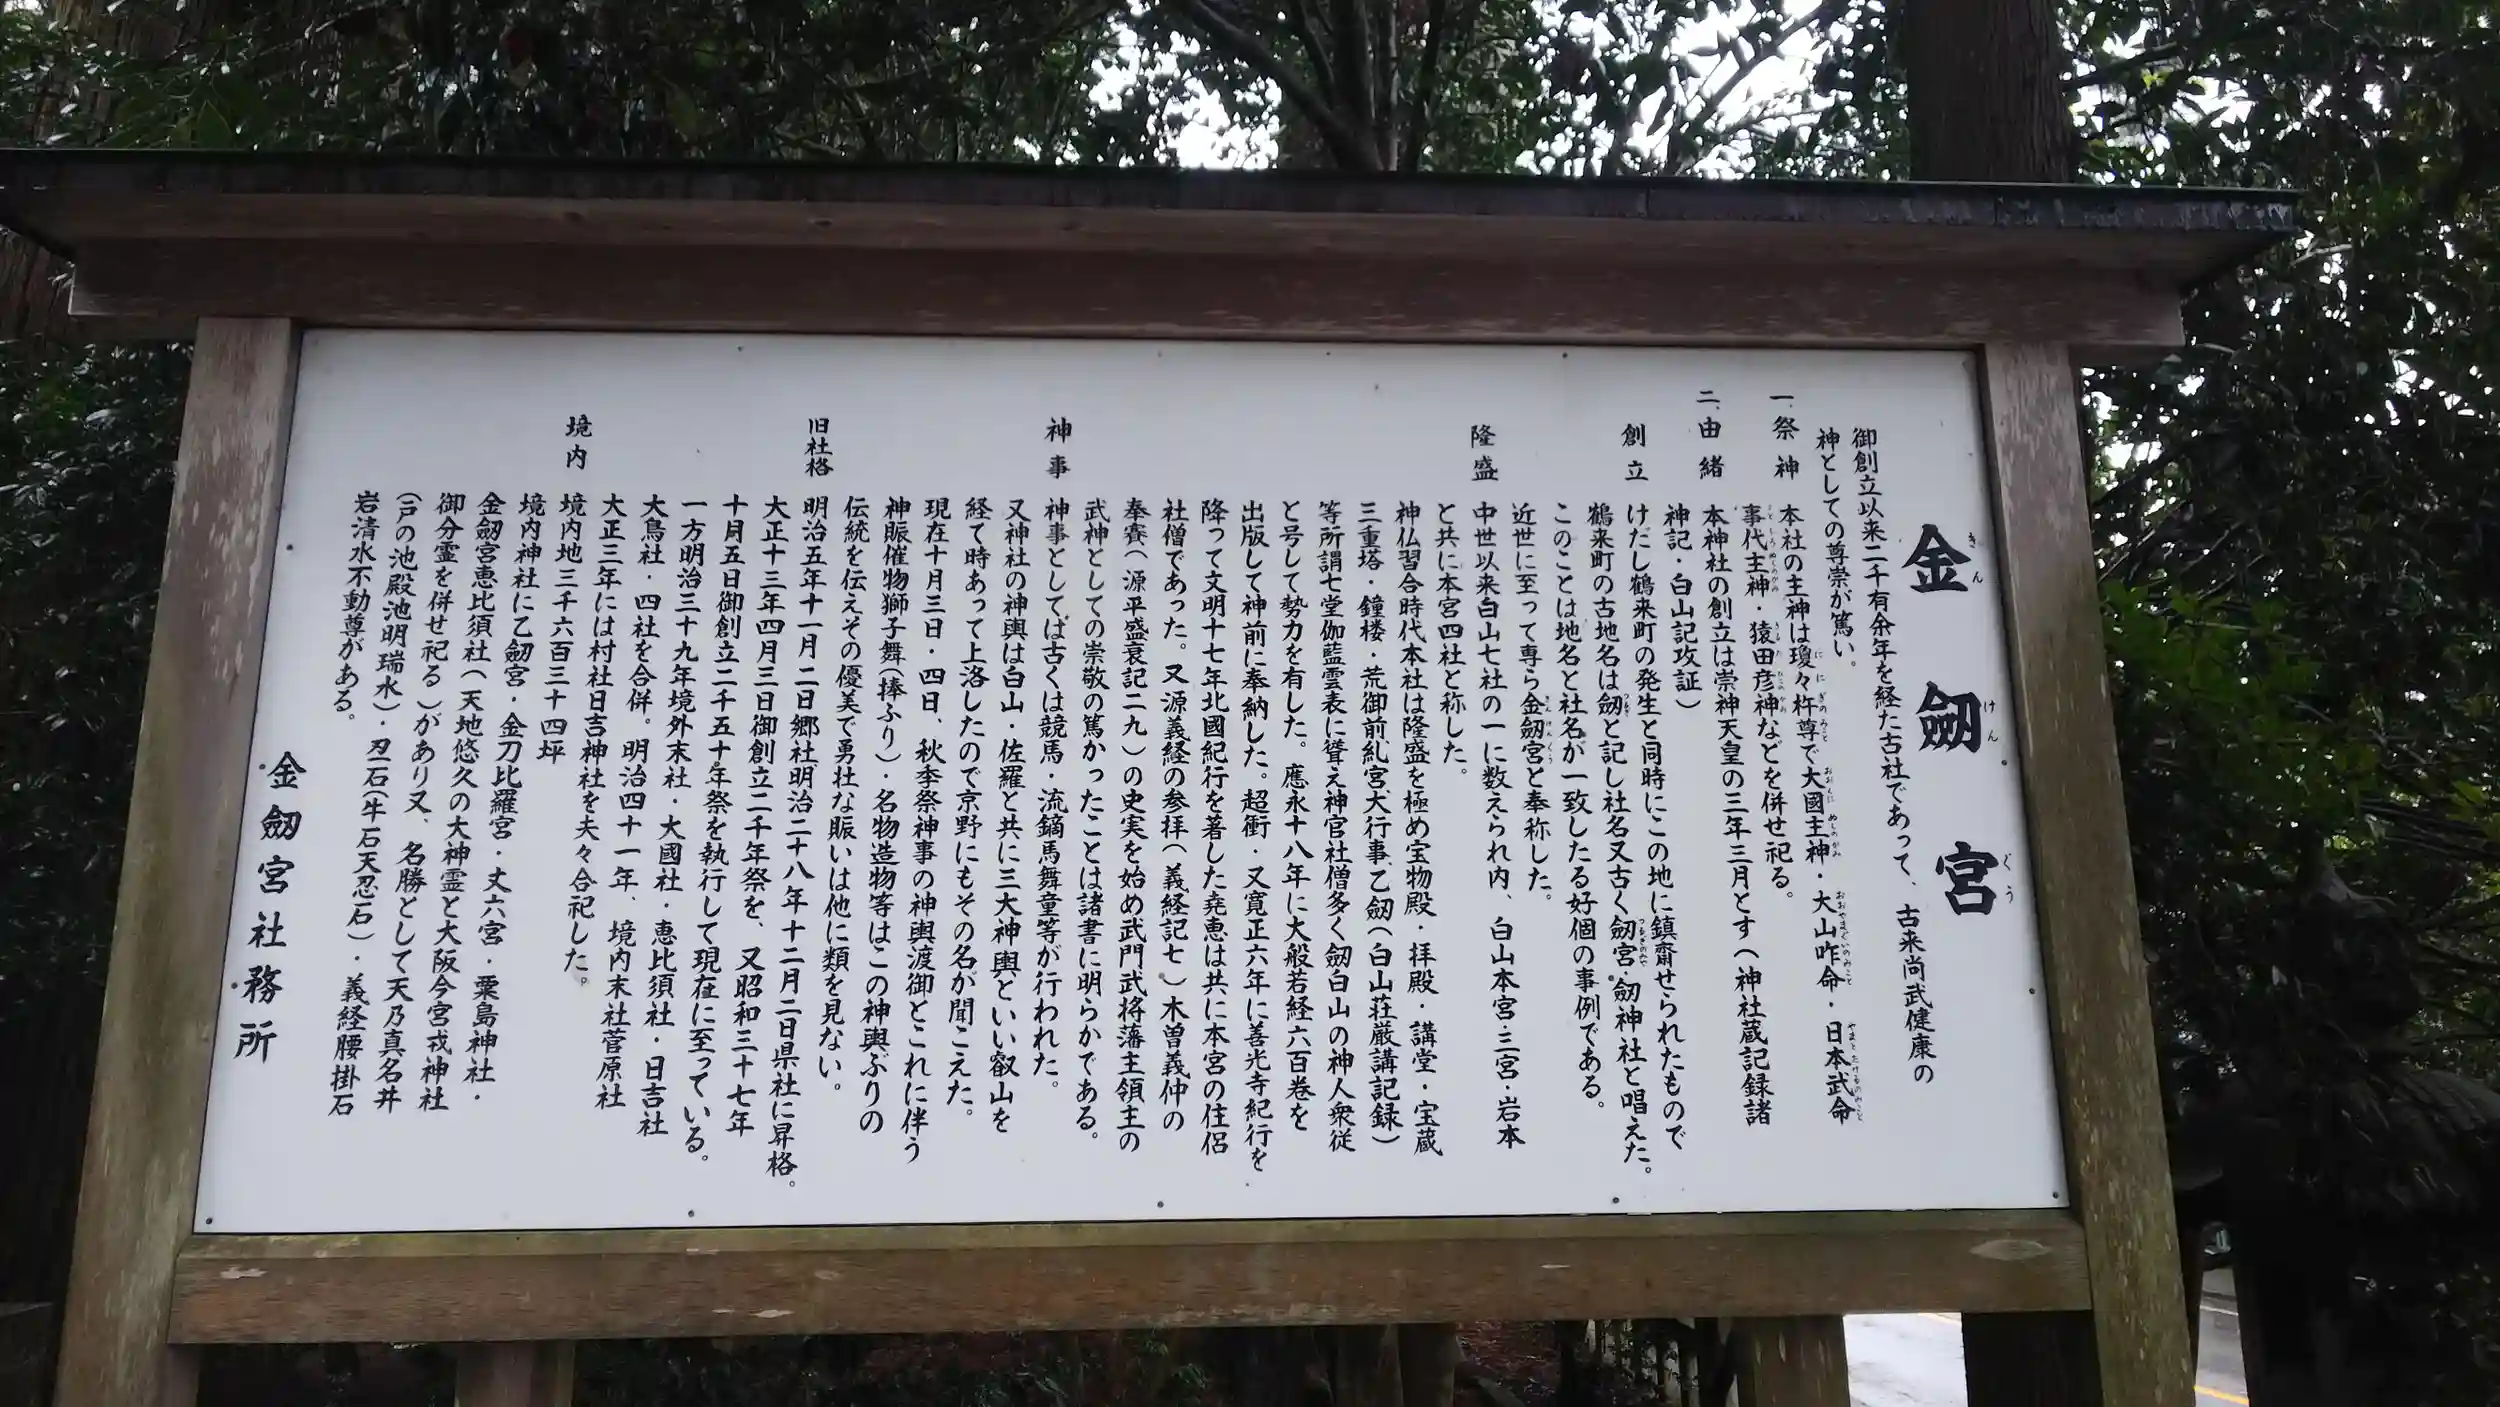 金劔宮
きんけんぐう
御創立以来二千有余年を経た古社であって、古来尚武健康の
神としての尊崇が篤い。
一、祭神
本社の主神は瓊々杵尊で大國主神・大山咋命・日本武命
ににぎのみこと おおくにぬしのかみ おおやまぐいのみこと やまとたけるのみこと
事代主神・猿田彦神などを併せ祀る。
ことしろぬしのかみ さるたひこのかみ
二、由緒
本神社の創立は崇神天皇の三年三月とす(神社蔵記録諸
神記・白山記攻証)
創立
けだし鶴来町の発生と同時にこの地に鎮齋せられたもので
鶴来町の古地名は劔と記し社名又古く劔宮・劔神社と唱えた。
つるぎ つるぎのみや
このことは地名と社名が一致したる好個の事例である。
近世に至って専ら金劔宮と奉称した。
きんけんぐう
隆盛
中世以来白山七社の一に数えられ内、白山本宮・三宮・岩本
と共に本宮四社と称した。
神仏習合時代本社は隆盛を極め宝物殿・拝殿・講堂・宝蔵
三重塔・鐘楼・荒御前糺宮大行事、乙劔(白山荘厳講記録)
等所謂七堂伽藍雲表に聳え神官社僧多く劔白山の神人衆従
と号して勢力を有した。應永十八年に大般若経六百巻を
出版して神前に奉納した。超衝・又寛正六年に善光寺紀行を
降って文明十七年北國紀行を著した堯恵は共に本宮の住侶
社僧であった。又源義経の参拝(義経記七)木曽義仲の
奉賽(源平盛衰記二九)の史実を始め武門武将藩主領主の
武神としての崇敬の篤かったことは諸書に明らかである。
神事
神事としては古くは競馬・流鏑馬舞童等が行われた。
又神社の神輿は白山・佐羅と共に三大神輿といい叡山を
経て時あって上洛したので京野にもその名が聞こえた。
現在十月三日・四日、秋季祭神事の神輿渡御とこれに伴う
神賑催物獅子舞(捧ふり)・名物造物等はこの神輿ぶりの
伝統を伝えその優美で勇壮な賑いは他に類を見ない。
旧社格
明治五年十一月二日郷社明治二十八年十二月二日県社に昇格。
大正十三年四月三日御創立二千年祭を、又昭和三十七年
十月五日御創立二千五十年祭を執行して現在に至っている。
一方明治三十九年境外末社・大國社・恵比須社・日吉社
大鳥社・四社を合併。明治四十一年、境内末社菅原社
大正三年には村社日吉神社を夫々合祀した。
境内
境内地三千六百三十四坪
境内神社に乙劔宮・金刀比羅宮・丈六宮・粟島神社・
金劔宮恵比須社(天地悠久の大神霊と大阪今宮戎神社
御分霊を併せ祀る)があり又、名勝として天乃真名井
(戸の池殿池明瑞水)・忍石(牛石天忍石)・義経腰掛石
岩清水不動尊がある。
金劔宮社務所